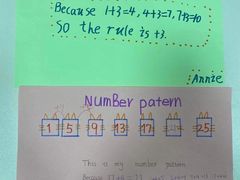 Because 1+3=4, 4+3=7, 7+3=10
So the rule is +3.
Annie
Number patern
1 5 9 13 17 25
This is my number pattern
Because